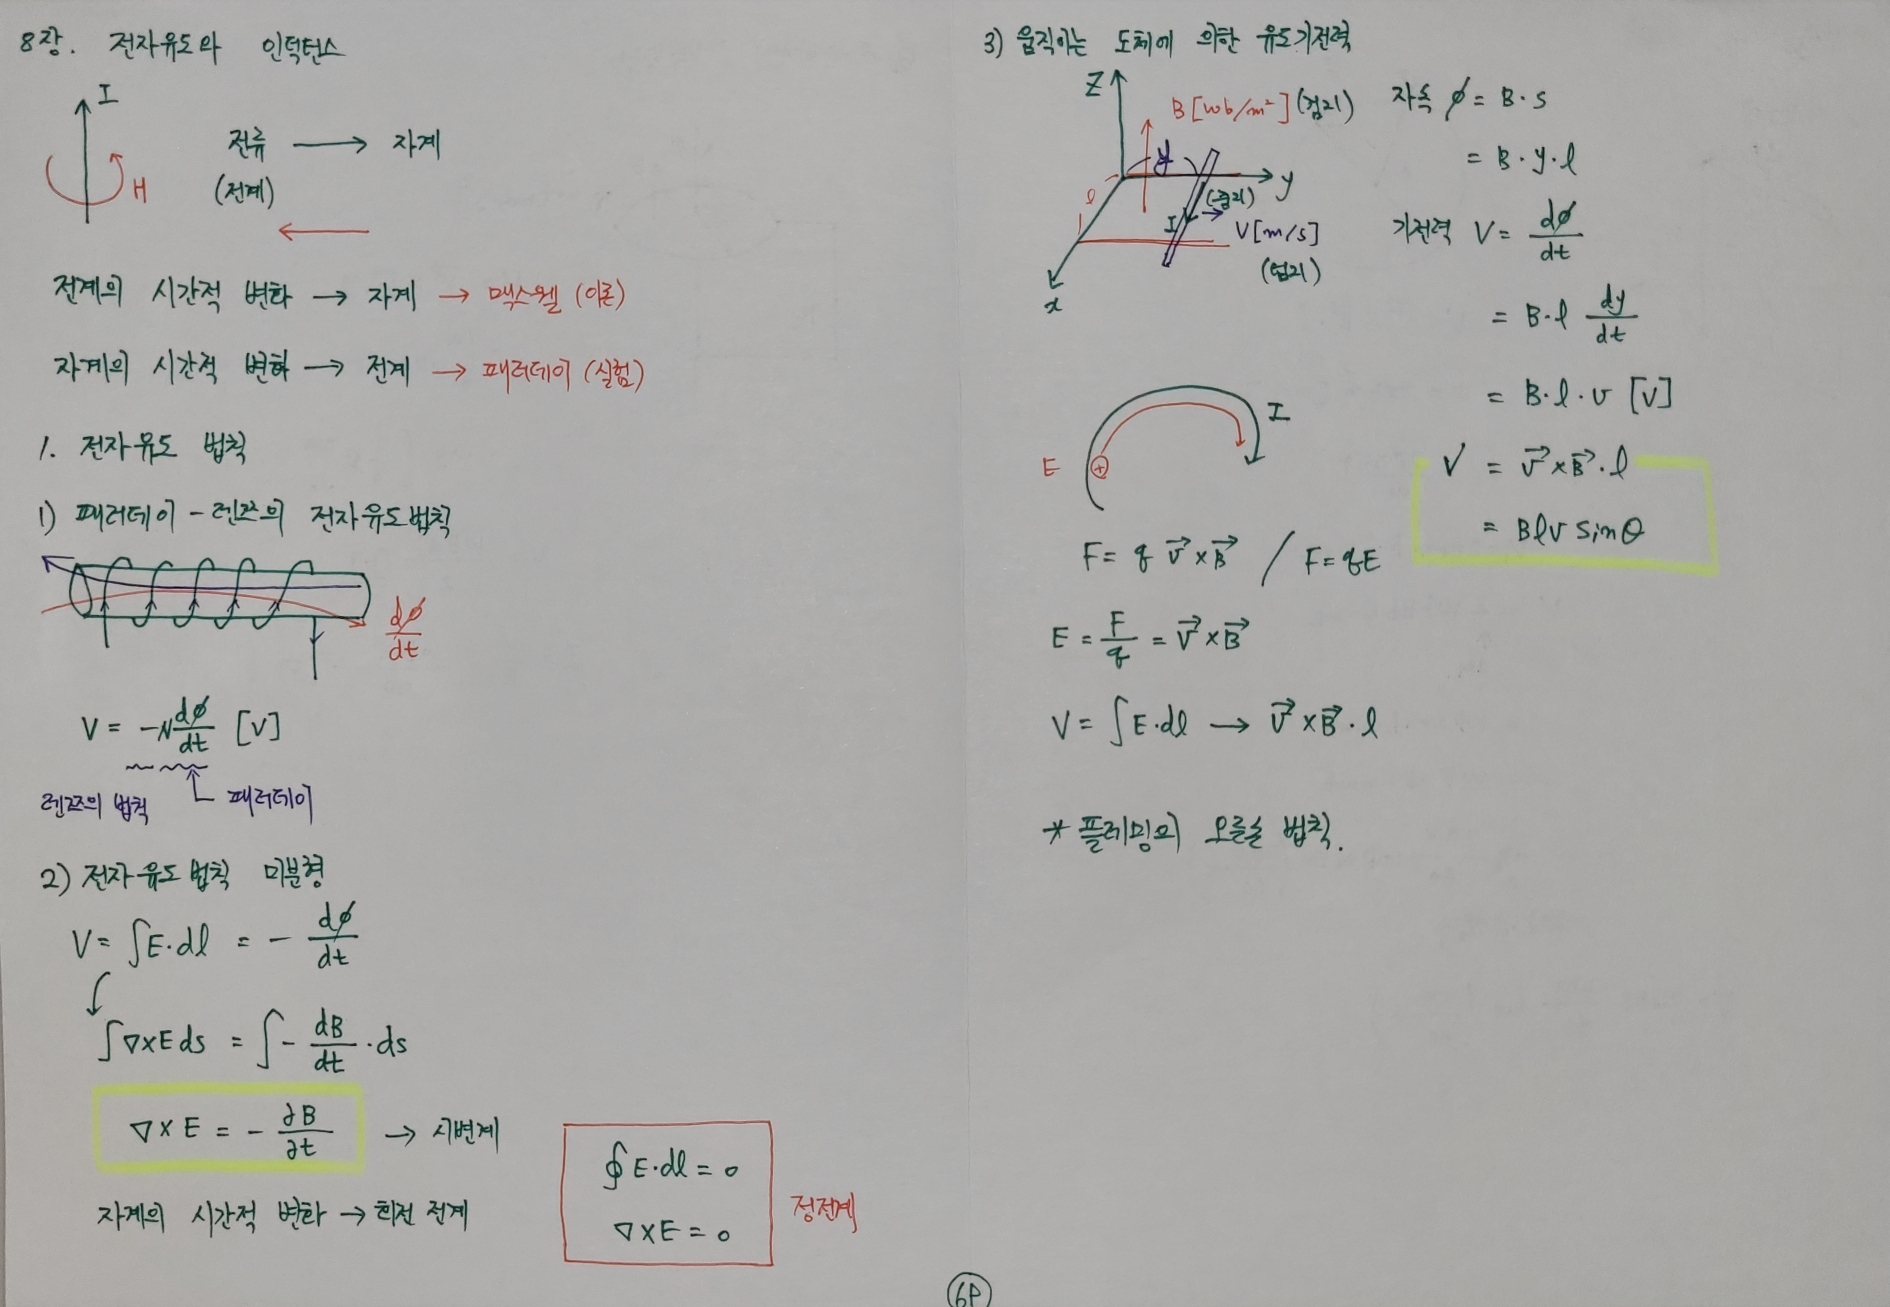 8장. 전자유도와 인덕턴스
I
H
전류 → 자계
(전계)
←
전계의 시간적 변화 → 자계 → 맥스웰 (이론)
자계의 시간적 변화 → 전계 → 패러데이 (실험)
1. 전자유도 법칙
1) 패러데이 - 렌쯔의 전자유도법칙
dϕ/dt
V = -N dϕ/dt [V]
렌쯔의 법칙 패러데이
2) 전자유도법칙 미분형
V = ∫E·dl = - dϕ/dt
∫∇×E ds = ∫- dB/dt · ds
∇×E = - ∂B/∂t → 시변계
자계의 시간적 변화 → 회전 전계
∮E·dl = 0
∇×E = 0
정전계
3) 움직이는 도체에 의한 유도기전력
Z
B [wb/m²] (검지)
y
l
y
(중지)
I
V [m/s]
(엄지)
x
자속 ϕ = B·s
= B·y·l
기전력 V = dϕ/dt
= B·l dy/dt
= B·l·v [V]
V = v⃗×B⃗·l
= Blv sinθ
I
E
+
F = q v⃗×B⃗ / F = qE
E = F/q = v⃗×B⃗
V = ∫E·dl → v⃗×B⃗·l
* 플레밍의 오른손 법칙.
6P